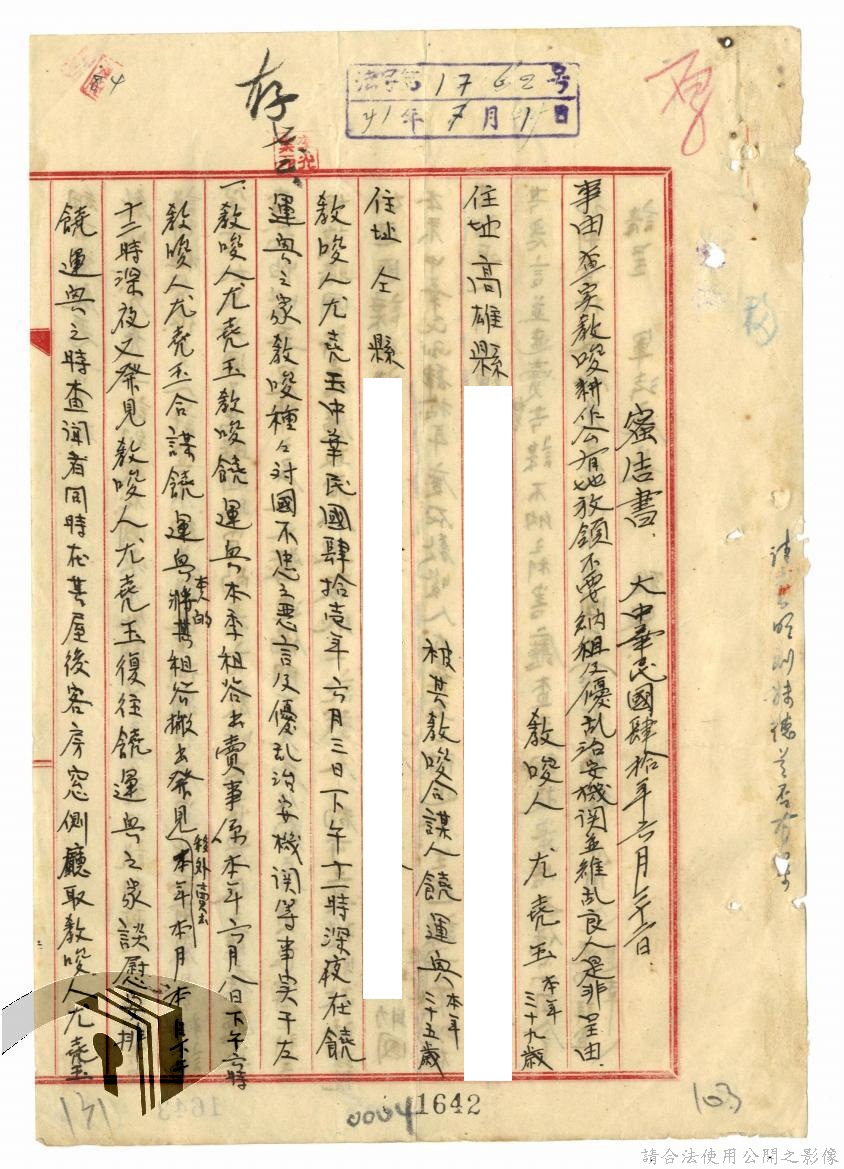 存
法字第1762号
41年7月4日
蜜告書　大中華民國肆拾年六月二十六日
事由查实教唆耕作公有地放領不要納租及優乱治安機误並維乱良人是非呈由
教唆人尤堯玉本年三十九歲
住地高雄縣
被其教唆合謀人饒運興本年三十五歲
住址仝縣
教唆人尤堯玉中華民國肆拾壹年六月三日下午十一時深夜在饒
運興之家教唆種々对國不忠之悪言及優乱治安機误等事实于左
一、教唆人尤堯玉教唆饒運興本季租谷出賣事原本年六月八日下午六時
教唆人尤堯玉合謀饒運興將其本人的租谷搬出發見移外賣去本年本月本日
十二時深夜又發見教唆人尤堯玉復往饒運興之家談慰安排
饒運興之時查聞者同時在其屋後客房窓側廳取教唆人尤堯玉
141
0004
1642
103
請合法使用公開之影像